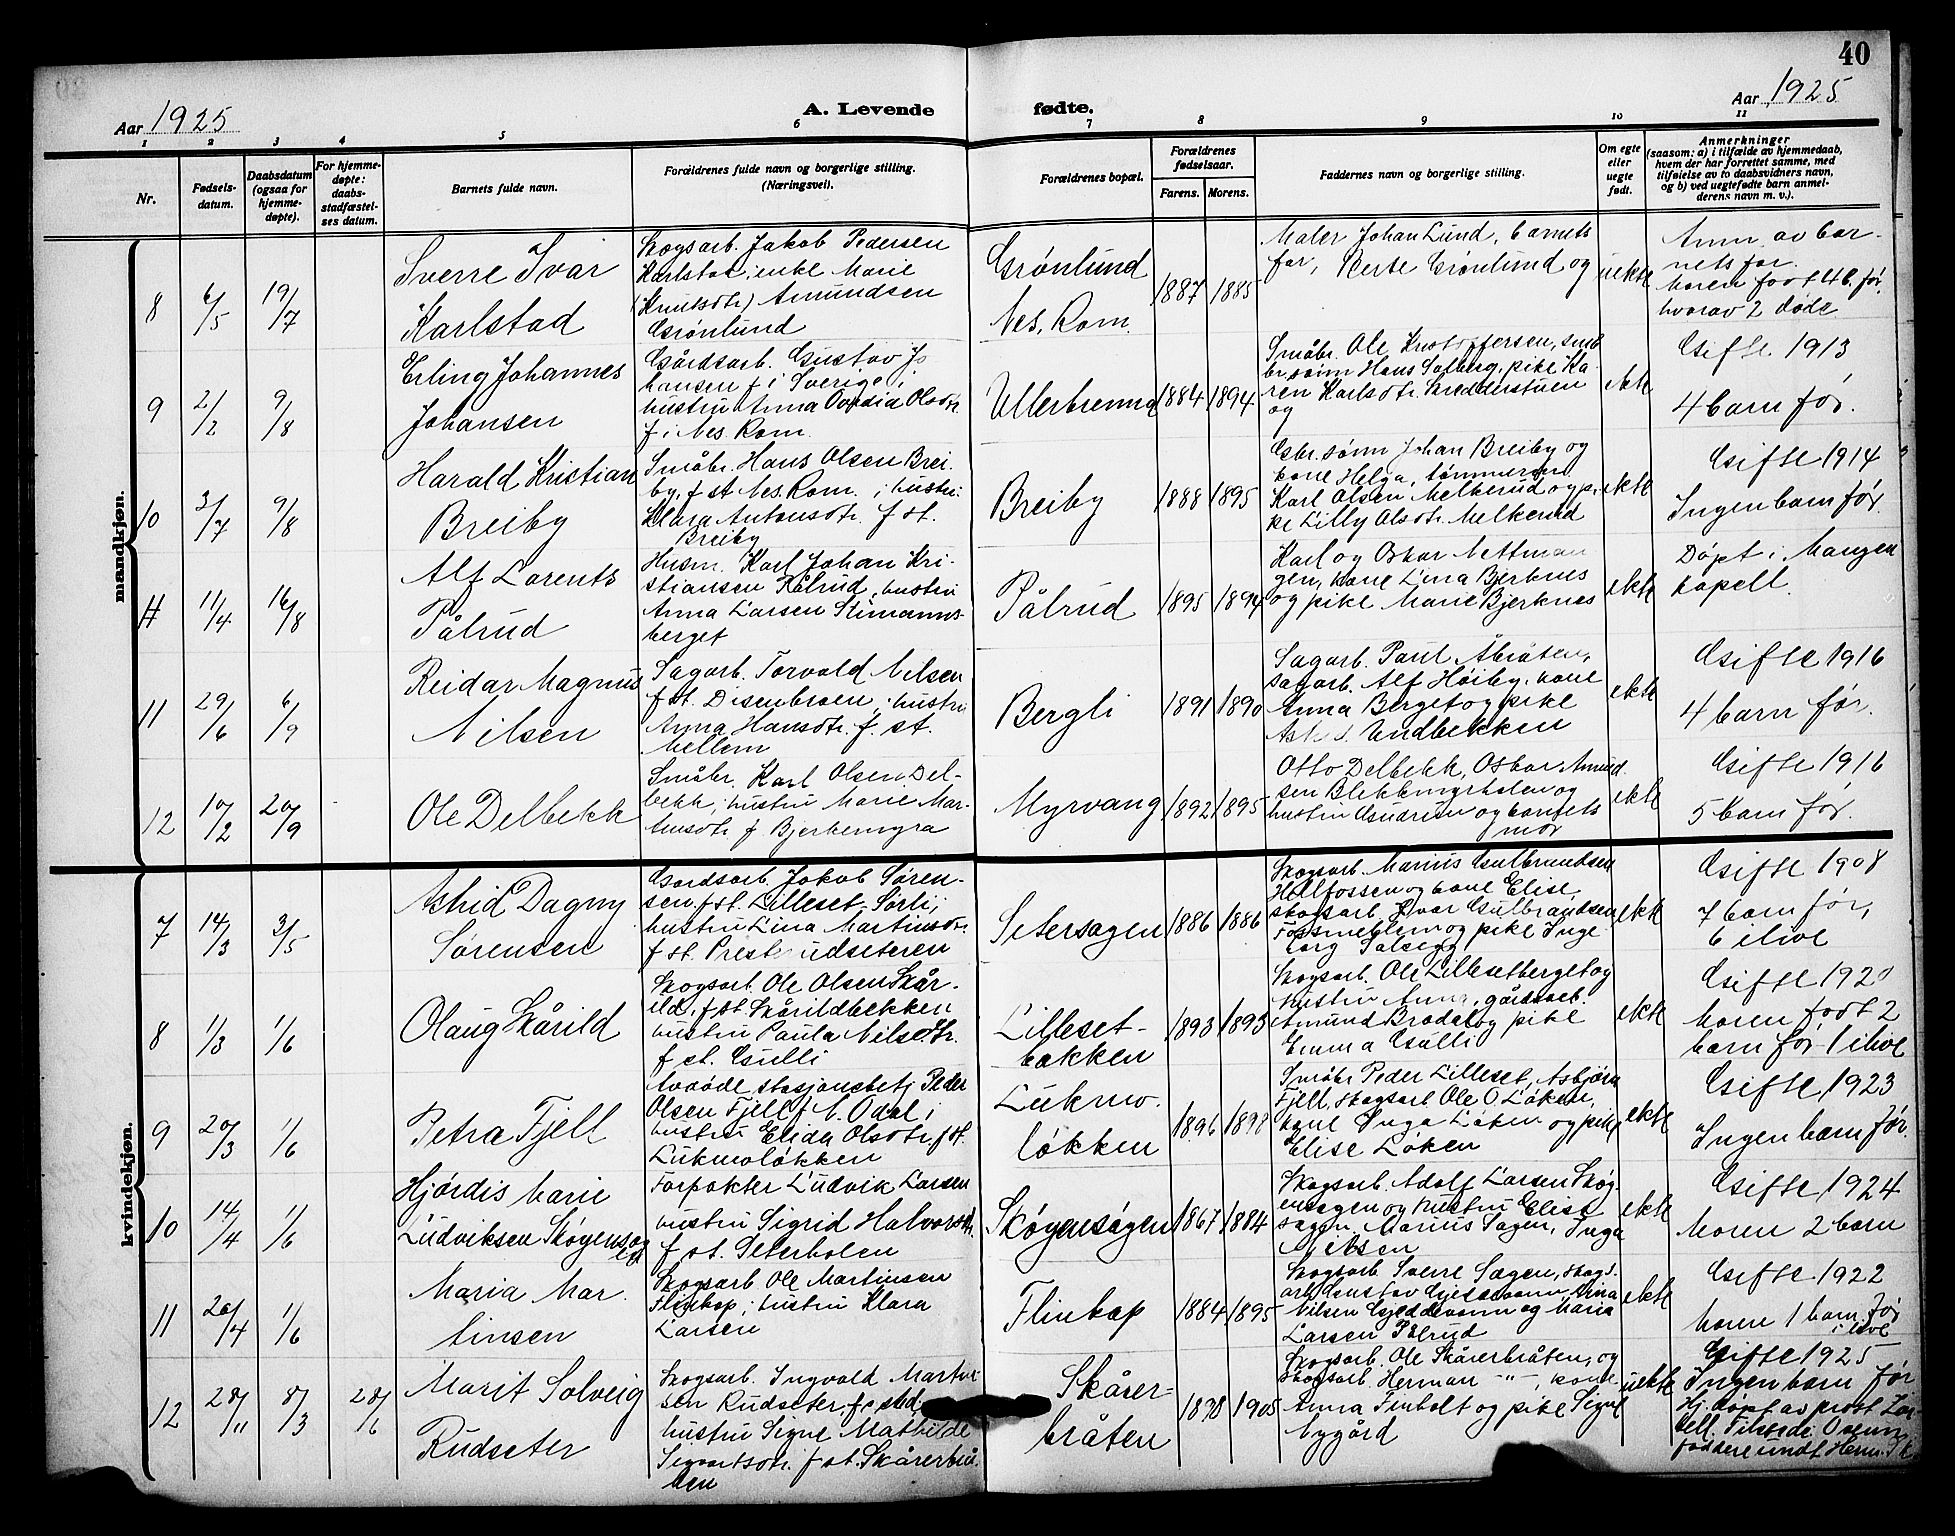 40
Aar 1925
A. Levende fødte.
Aar 1925
1 2 3 4 5 6 7 8 9 10 11
Nr.
Fødsels-
datum.
Daabsdatum
(ogsaa for
hjemme-
døpte).
For hjemme-
døpte:
daabs-
stadfæstel-
ses datum.
Barnets fulde navn.
Forældrenes fulde navn og borgerlige stilling.
(Næringsvei).
Forældrenes bopæl.
Forældrenes
fødselsaar.
Farens. Morens.
Faddernes navn og borgerlige stilling.
Om egte
eller
uegte
født.
Anmerkninger
(saasom: a) i tilfælde av hjemmedaab,
hvem der har forrettet samme, med
tilføielse av to daabsvidners navn,
og b) ved uegtefødte barn anmel-
derens navn m. v.).
mandkjøn.
8
6/5
19/7
Sverre Ivar
Karlstad
Skogsarb. Jakob Pedersen
Karlstad, enke Marie
(Knutsdtr) Amundsen
Grønlund
Grønlund
Nes, Rom.
1887 1885
Maler Johan Lund, barnets
far, Berte Grønlund og
uekte
Anm. av bar-
nets far.
Moren født 4 b. før,
hvorav 2 døde
9
2/2
9/8
Erling Johannes
Johansen
Gårdsarb. Gustav Jo
hansen f i Sverige i
hustru Anna Olsdtr.
f i Nes, Rom.
Ullerbrenna
1884 1894
Småbr. Ole Kristoffersen, små
br.sønn Hans Solberg, pike Ka-
ren Karlsdtr. Skredderstuen
og
ekte
Gifte 1913
4 barn før.
10
3/7
9/8
Harald Kristian
Breiby
Småbr. Hans Olsen Brei-
by, f st Nes, Rom. i hustru
Klara Antonsdtr. f st.
Breiby
Breiby
1888 1895
Gbr.sønn Johan Breiby og
kone Helga, tømmerm
Karl Olsen Melkerud og pi-
ke Lilly Olsdtr. Melkerud
ekte
Gifte 1914
Ingen barn før.
11
11/4
16/8
Alf Lorents
Pålrud
Husm. Karl Johan Kri-
stiansen Pålrud, hustru
Anna Larsen Stimanns-
berget
Pålrud
1895 1894
Karl og Oskar Nettman
gen, kone Lina Bjerknes
og pike Marie Bjerknes
ekte
Døpt i Mangen
kapell.
11
29/6
6/9
Reidar Magnus
Nilsen
Sagarb. Torvald Nilsen
f st. Disenbroen, hustru
Anna Hansdtr. f. st.
Mellem
Bergli
1891 1890
Sagarb. Paul Åbråten,
sagarb. Alf Høiby, kone
Anna Berget og pike
Undbekken
ekte
Gifte 1916
4 barn før.
12
10/2
20/9
Ole Delbekk
Småbr. Karl Olsen Del-
bekk, hustru Marie Mar-
f Bjerkemyra
Myrvang
1892 1895
Otto Delbekk, Oskar Amund
sen Blekkmyrholen og
hustru Gudrun og barnets
mor
ekte
Gifte 1916
5 barn før.
kvindekjøn.
7
14/3
3/5
Astrid Dagny
Sørensen
Gardsarb. Jakob Søren-
sen, f st. Lilleset-Sørli,
hustru Lina Martinsdtr.
f st. Prest udseteren
Setersagen
1886 1886
Skogsarb. Marius Gulbrandsen
Helfossen og kone Elise,
skogsarb Ivar Gulbrandsen
Fossmellem og pike Inge
borg Solsegg
ekte
Gifte 1908
7 barn før,
6 ilive
8
1/3
1/6
Olaug Skårild
Skogsarb. Ole Olsen Skår-
ild, f st. Skårildbekken
hustru Paula Nilsdtr.
f st. Gulli
Lilleset-
bakken
1893 1893
Skogsarb. Ole Lillesetberget og
hustru Anna, gårdsarb.
Amund Brodal og pike
Emma Gulli
ekte
Gifte 192
Moren født 2
barn før 1 ilive
9
20/3
1/6
Petra Fjell
Avdøde stasjonsbetj Peder
Olsen Fjell f N. Odal i
hustru Elida Olsdtr. f st.
Lukmoløkken
Lukmo-
løkken
1896 1898
Småbr Peder Lilleset, Asbjørn
Fjell, skogsarb Ole O Løken,
kone Inga Løken og pike
Elise Løken
ekte
Gifte 1923
Ingen barn før.
10
14/4
1/6
Hjørdis Marie
Ludviksen Skøgensag
Forpakter Ludvik Larsen
hustru Sigrid Halvorsdtr.
f st. Seterholen
Skøgensagen
1867 1884
Skogsarb. Adolf Larsen Skøg-
ensagen og hustru Elise
sagen, Marius Sagen, Inga
Nilsen
ekte
Gifte 1924
Moren 2 barn
11
26/4
1/6
Maria Mar-
tinsen
Skogsarb Ole Martinsen
Flinkop, hustru Klara
Larsen
Flinkop
1884 1895
Skogsarb Sverre Sagen, skogs-
arb Gustav Gjeddevann, Anna
Nilsen Gjeddevann og Maria
Larsen Pålrud
ekte
Gifte 1922
Moren 1 barn før
i live
12
28/11
8/3
28/6
Marit Solveig
Rudseter
Skogsarb. Ingvald Martin
sen Rudseter, f sted
hustru Signe Mathilde
Sigvartsdtr. f st. Skårerbrå-
ten
Skårer-
bråten
1878 1905
Skogsarb. Ole Skårerbråten, og
skogsarb Herman -"-, kone
Anna Finholt og pike Signe
Nygård
uekte
Gifte 1925
Ingen barn før
Hj.døpt av prost
Tilstede